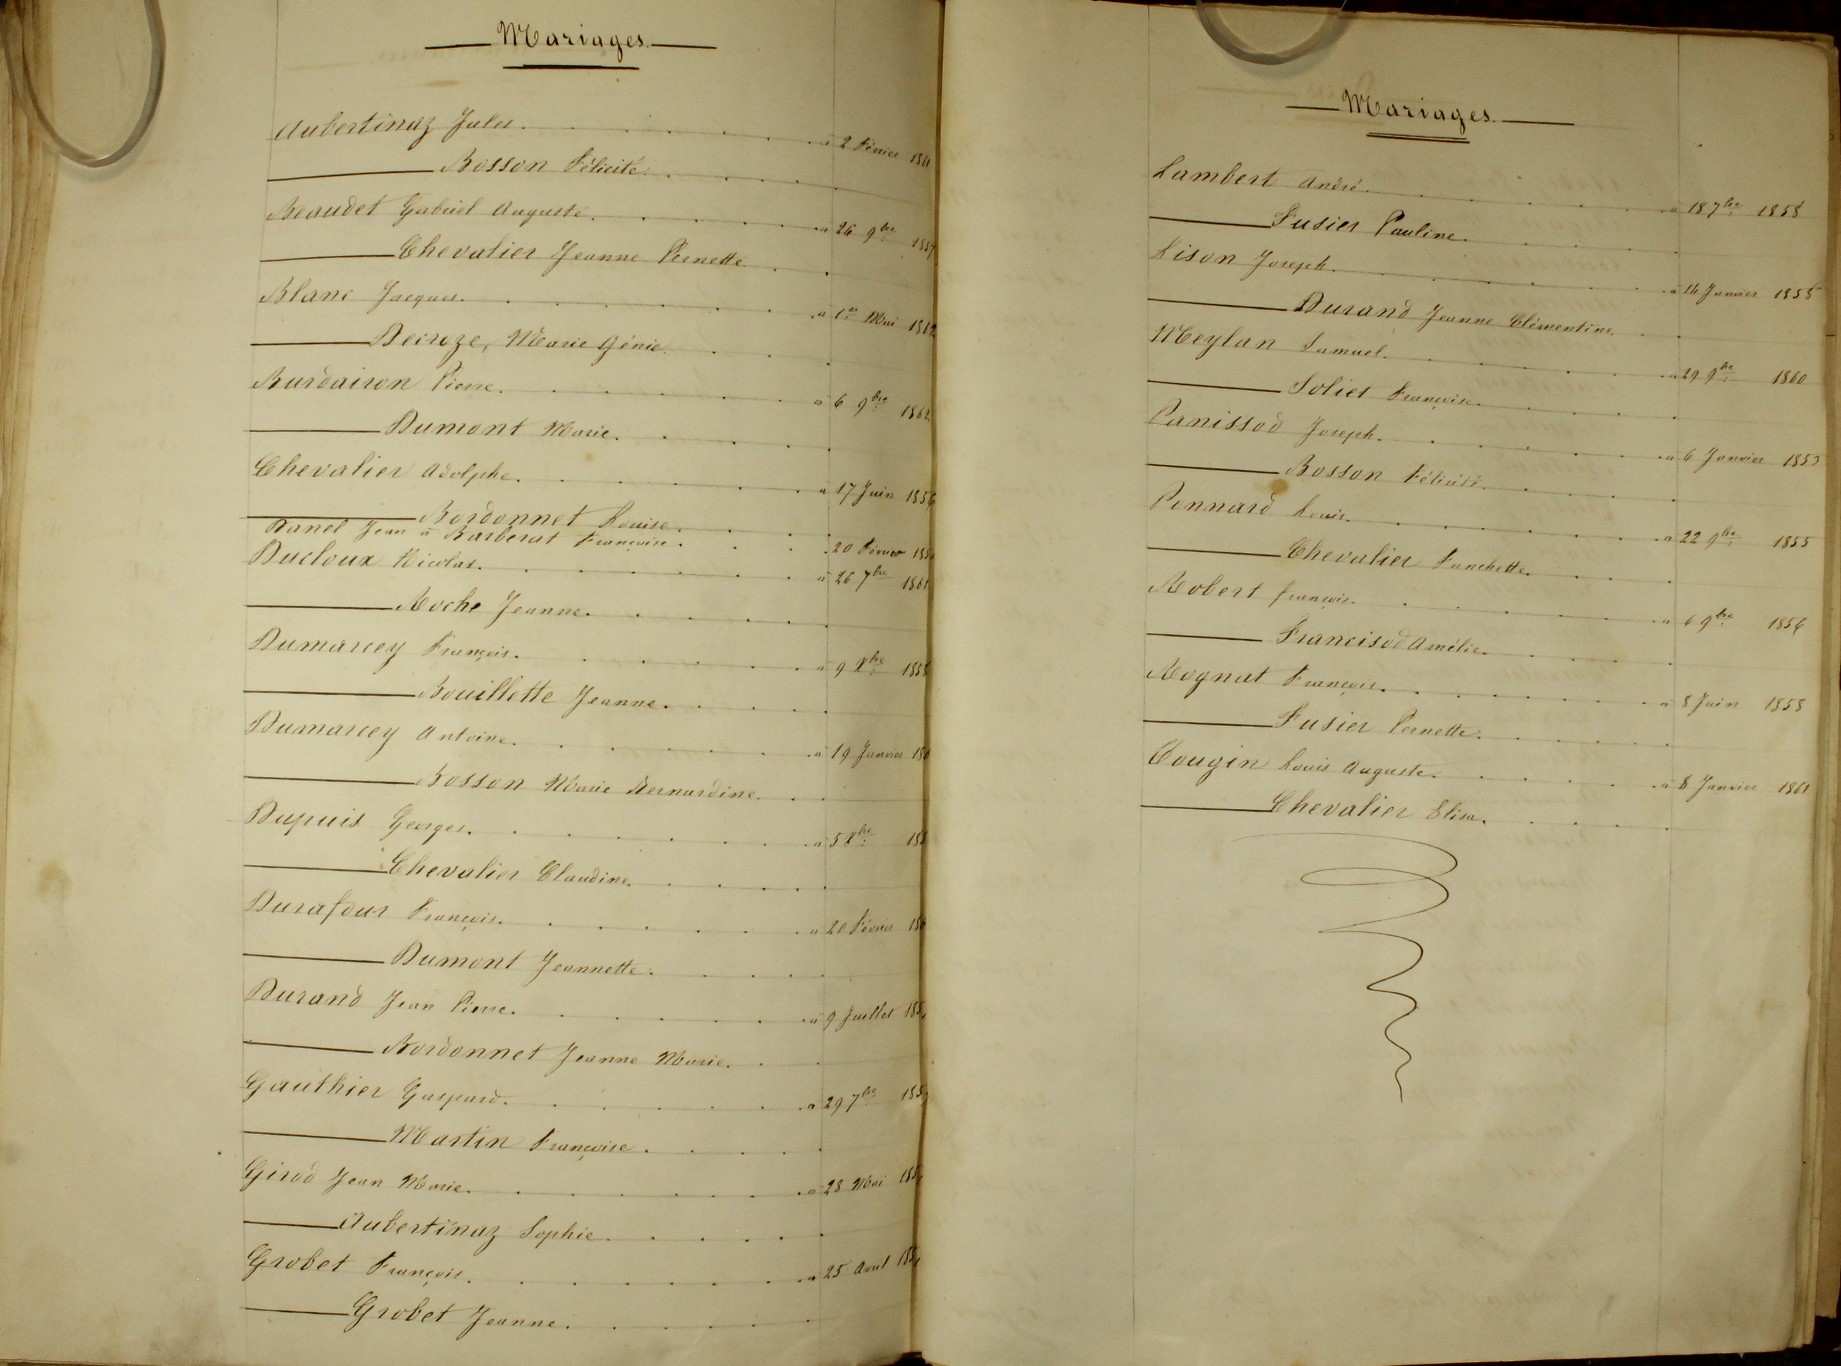 Mariages
Aubertinaz Jules. à 2 Février
Bosson Félicité.
Beaudet Gabriel Auguste. à 26 9bre
Chevalier Jeanne Pernette
Blanc Jacques. à 1er Mai
Decroze, Marie Génie.
Burdairon Pierre. à 6 9bre 1862
Dumont Marie.
Chevalier Adolphe. à 17 Juin 1856
Bordonnet Louise.
Danel Jean à Barberat Françoise. 20 Février
Ducloux Nicolas. à 26 7bre 1861
Roche Jeanne.
Dumarcey François. à 9 Xbre 1858
Bouillotte Jeanne.
Dumarcey Antoine. à 19 Janvier
Bosson Marie Bernardine.
Dupuis Georges. à 5 Xbre
Chevalier Claudine.
Durafour François. à 20 Février
Dumont Jeannette.
Durand Jean Pierre. à 9 Juillet
Bordonnet Jeanne Marie.
Gauthier Gaspard. à 29 7bre
Martin Françoise.
Girod Jean Marie. à 28 Mai
Aubertinaz Sophie.
Grobet François. à 25 Avril
Grobet Jeanne.
Mariages
Lambert André. à 18 7bre 1858
Fusier Pauline.
Lison Joseph. à 16 Janvier 1855
Durand Jeanne Clémentine.
Meylan Samuel. à 29 9bre 1860
Soliet Françoise.
Panissod Joseph. à 6 Janvier 1853
Bosson Félicité.
Pennard Louis. à 22 9bre 1855
Chevalier Fanchette.
Robert françois. à 6 9bre 1856
Francisod Amélie.
Rognat François. à 8 Juin 1858
Fusier Pernette.
Vougin Louis Auguste. à 8 Janvier 1861
Chevalier Elisa.